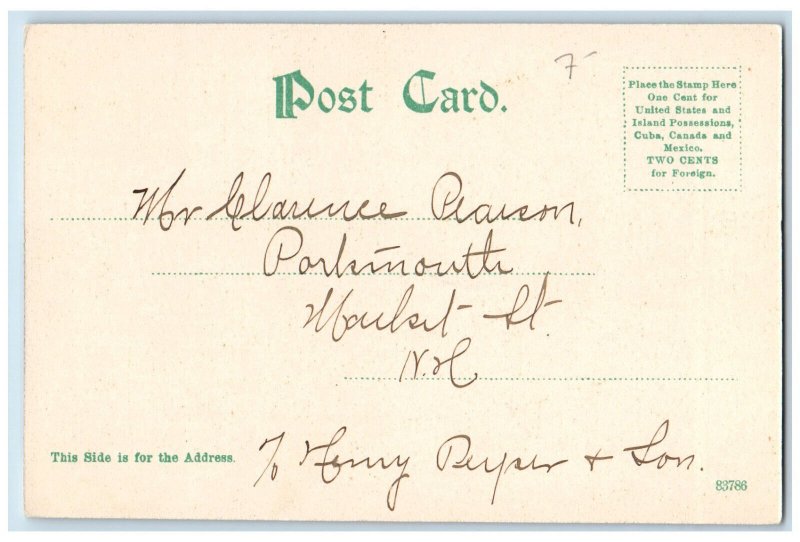 7-
Post Card.
Place the Stamp Here
One Cent for
United States and
Island Possessions,
Cuba, Canada and
Mexico.
TWO CENTS
for Foreign.
Mr Clarence Pearson,
Portsmouth
Market St.
N.H
This Side is for the Address.
% Henry & Son.
83786